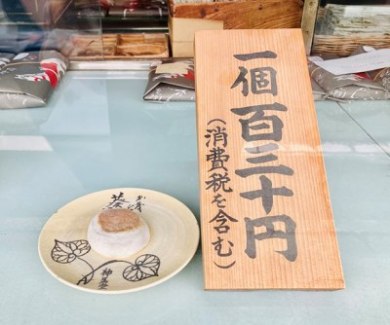 一個百三十円
(消費税を含む)